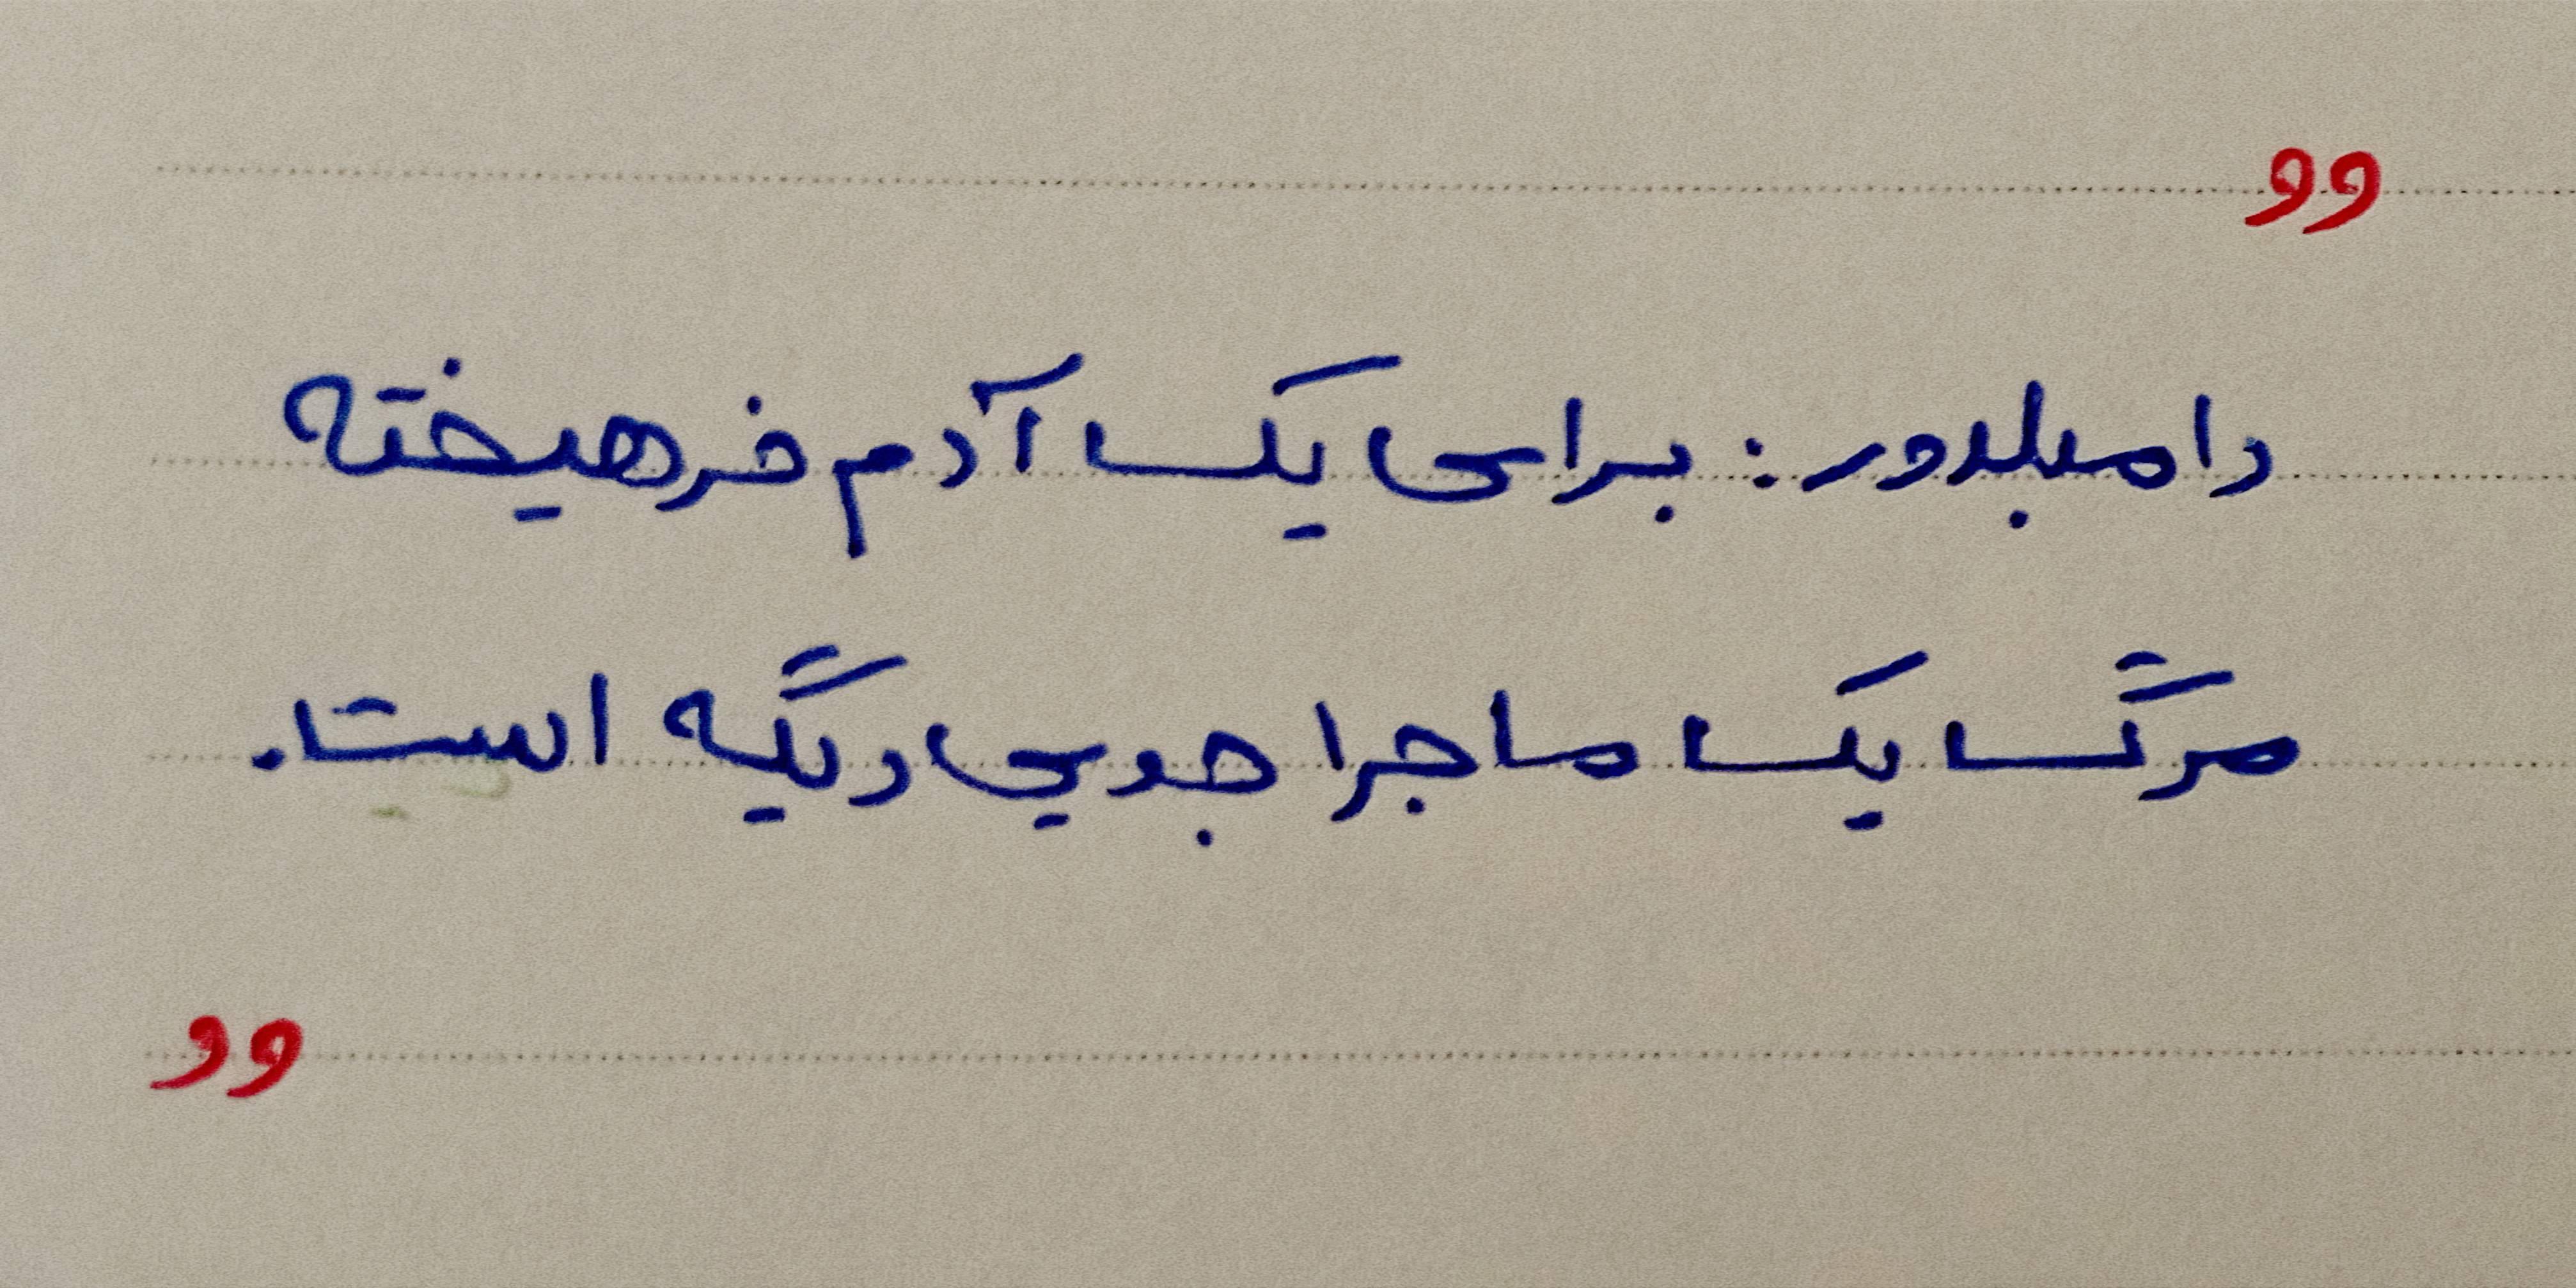 ”
دامبلدور: برای یک آدم فرهیخته
مرگ یک ماجراجویی دیگه است.
”